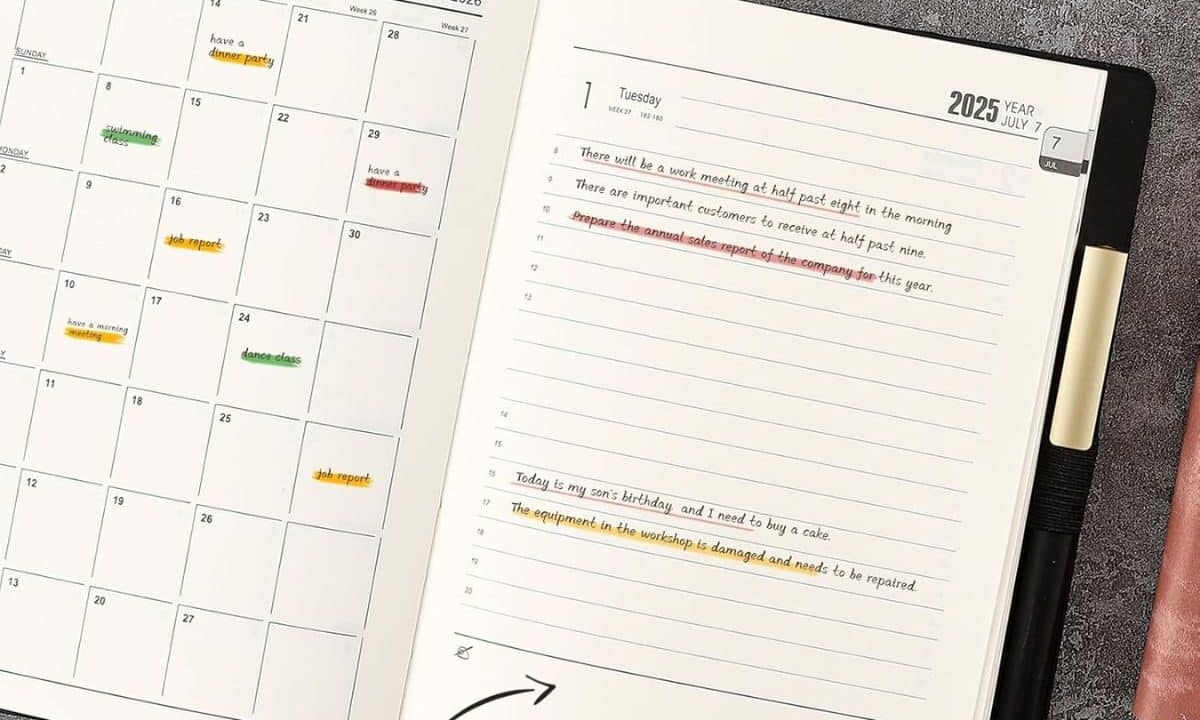 Week 26
Week 27
14
21
28
have a
dinner party
SUNDAY
1
8
15
22
29
swimming
class
have a
dinner party
2
9
16
23
30
job report
10
17
24
have a morning
meeting
dance class
11
18
25
job report
12
19
26
13
20
27
1 Tuesday
WEEK 27 182-183
2025 YEAR
JULY 7
7
JUL
8 There will be a work meeting at half past eight in the morning
9 There are important customers to receive at half past nine.
10 Prepare the annual sales report of the company for this year.
11
12
13
14
15
16 Today is my son's birthday and I need to buy a cake.
17 The equipment in the workshop is damaged and needs to be repaired.
18
19
20